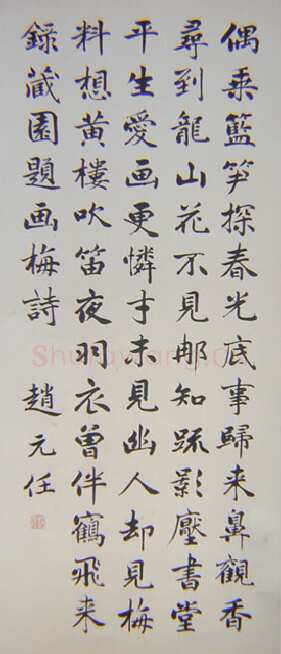 偶乘籃笋探春光底事歸来鼻觀香
尋到龍山花不見那知疏影壓書堂
平生愛画更憐才未見幽人却見梅
料想黄樓吹笛夜羽衣曾伴鶴飛来
錄藏園題画梅詩 趙元任